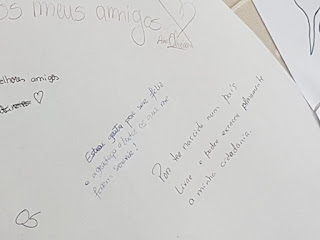 os meus amigos
elhores amigos
Estou grata por ser feliz
e agradeço a todos os que me
fazem sorrir!
Por ter nascido num país
livre e poder exercer plenamente
a minha cidadania.